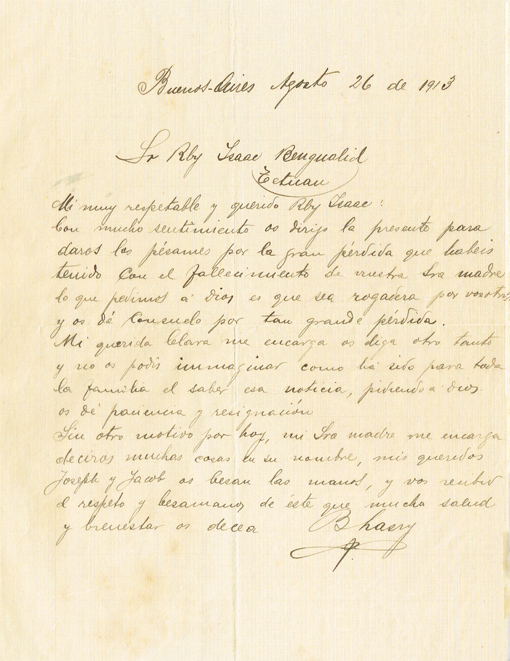 Buenos-Aires Agosto 26 de 1913
Sr Rby Isaac Bengualid
Tetuan
Mi muy respetable y querido Rby Isaac:
Con mucho sentimiento os dirijo la presente para
daros los pésames por la gran pérdida que habeis
tenido con el fallecimiento de vuestra Sra madre
lo que pedimos a Dios es que sea rogadera por vosotros
y os dé consuelo por tan grande pérdida.
Mi querida Clara me encarga os diga otro tanto
y no os podis immaginar como há sido para toda
la familia el saber esa noticia, pidiendo a dios
os dé paciencia y resignación
Sin otro motivo por hoy, mi Sra madre me encarga
deciros muchas cosas en su nombre, mis queridos
Joseph y Jacob os besan las manos, y vos recibir
el respeto y besamanos de éste que mucha salud
y bienestar os decea